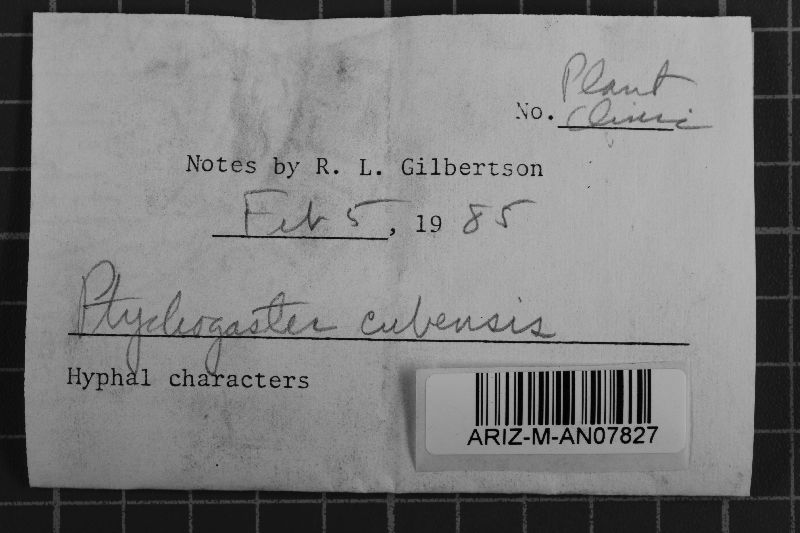 Plant
No. Clinic
Notes by R. L. Gilbertson
Feb 5, 19 85
Ptychogaster cubensis
Hyphal characters
ARIZ-M-AN07827